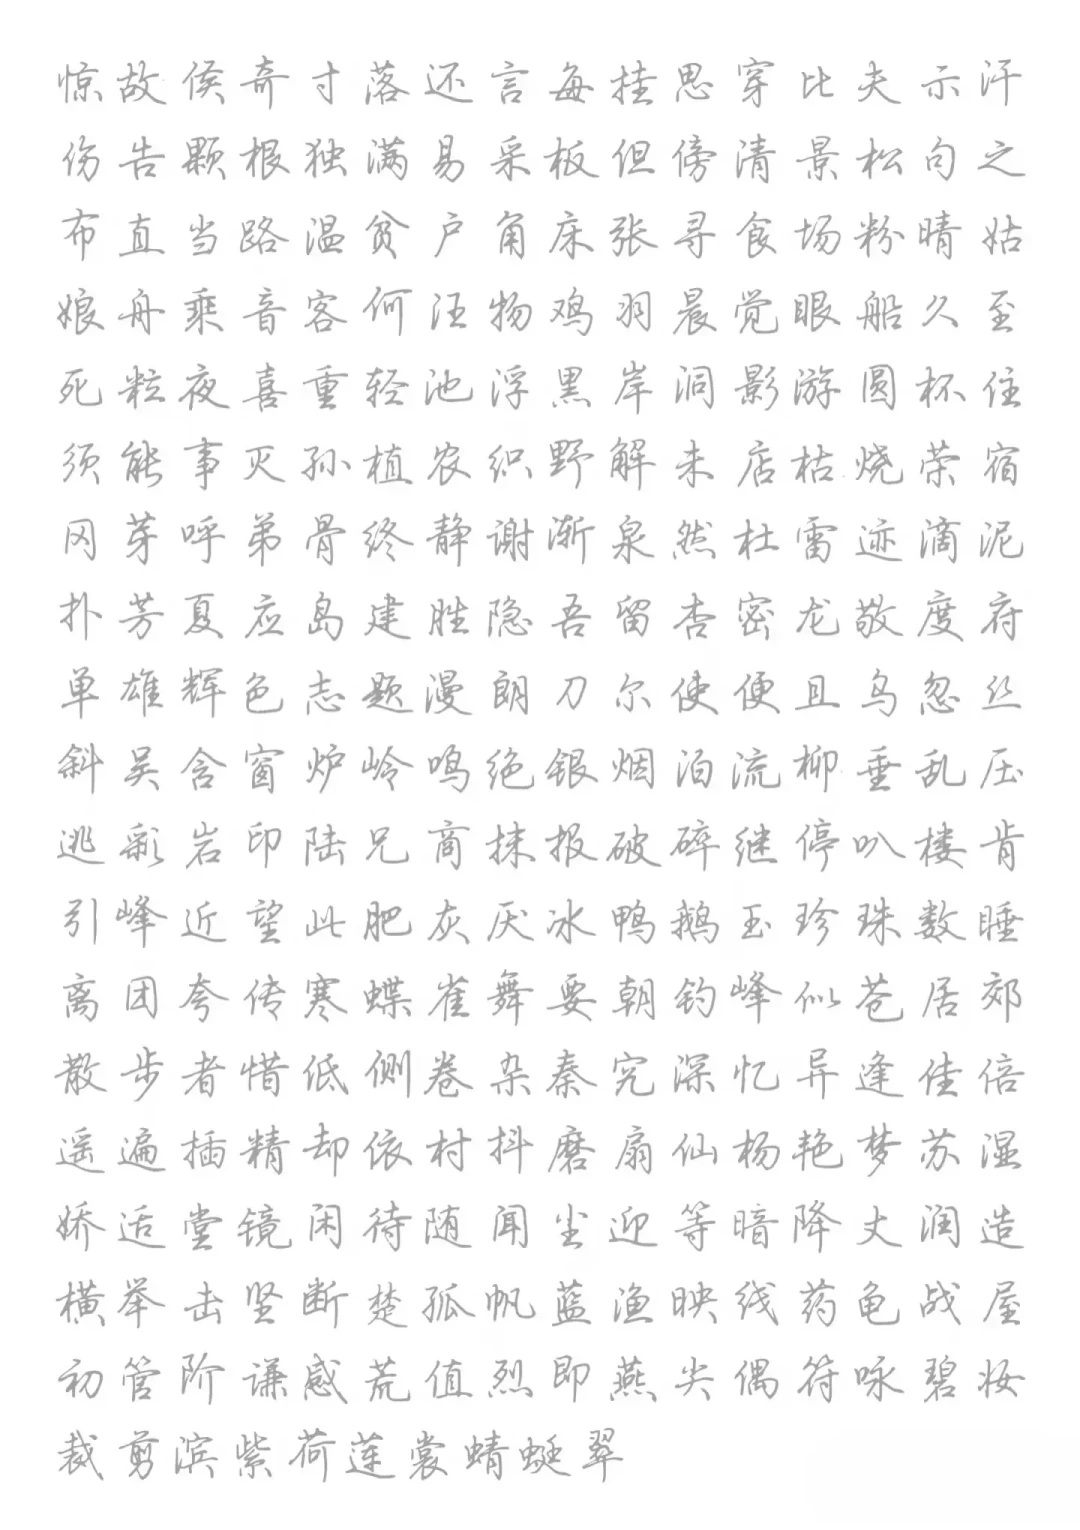 惊故侯奇寸落还言每挂思穿比夫示汗
伤告颗根独满易采板但傍清景松句之
布直当路温贫户角床张寻食场粉晴姑
娘舟乘音客何汪物鸡羽晨觉眼船久至
死粒夜喜重轻池浮黑岸洞影游圆杯住
须能事灭孙植农织野解未店枯烧荣宿
冈芽呼弟骨终静谢渐泉然杜雷迹滴泥
扑芳夏应岛建胜隐吾留杏密龙敬度府
单雄辉色志题漫朗刀尔使便且乌忽丝
斜吴含窗炉岭鸣绝银烟泊流柳垂乱压
逃彩岩印陆兄商抹报破碎继停叭楼肯
引峰近望此肥灰厌冰鸭鹅玉珍珠数睡
离团夸传寒蝶雀舞要朝钓峰似苍居郊
散步者惜低侧卷杂秦究深忆异逢佳倍
遥遍插精却依村抖磨扇仙杨艳梦苏湿
娇适堂镜闲待随闻尘迎等暗降丈润造
横举击坚断楚孤帆蓝渔映线药龟战屋
初管阶谦感荒值烈即燕尖偶符咏碧妆
裁剪滨紫荷莲裳蜻蜓翠